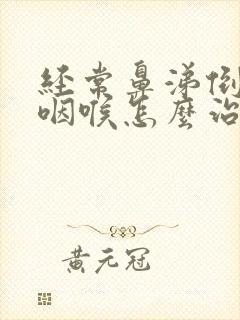 經常鼻涕倒
咽喉怎麼治
黃元冠